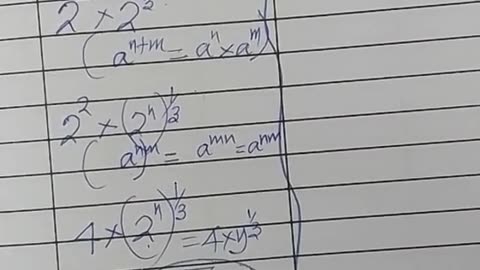 2 × 2
(a^{n+m} = a^n × a^m)
2^2 × (2^n)^{1/3}
(a^n)^m = a^{mn} = a^{nm}
4 × (2^n)^{1/3} = 4 × y^{1/3}